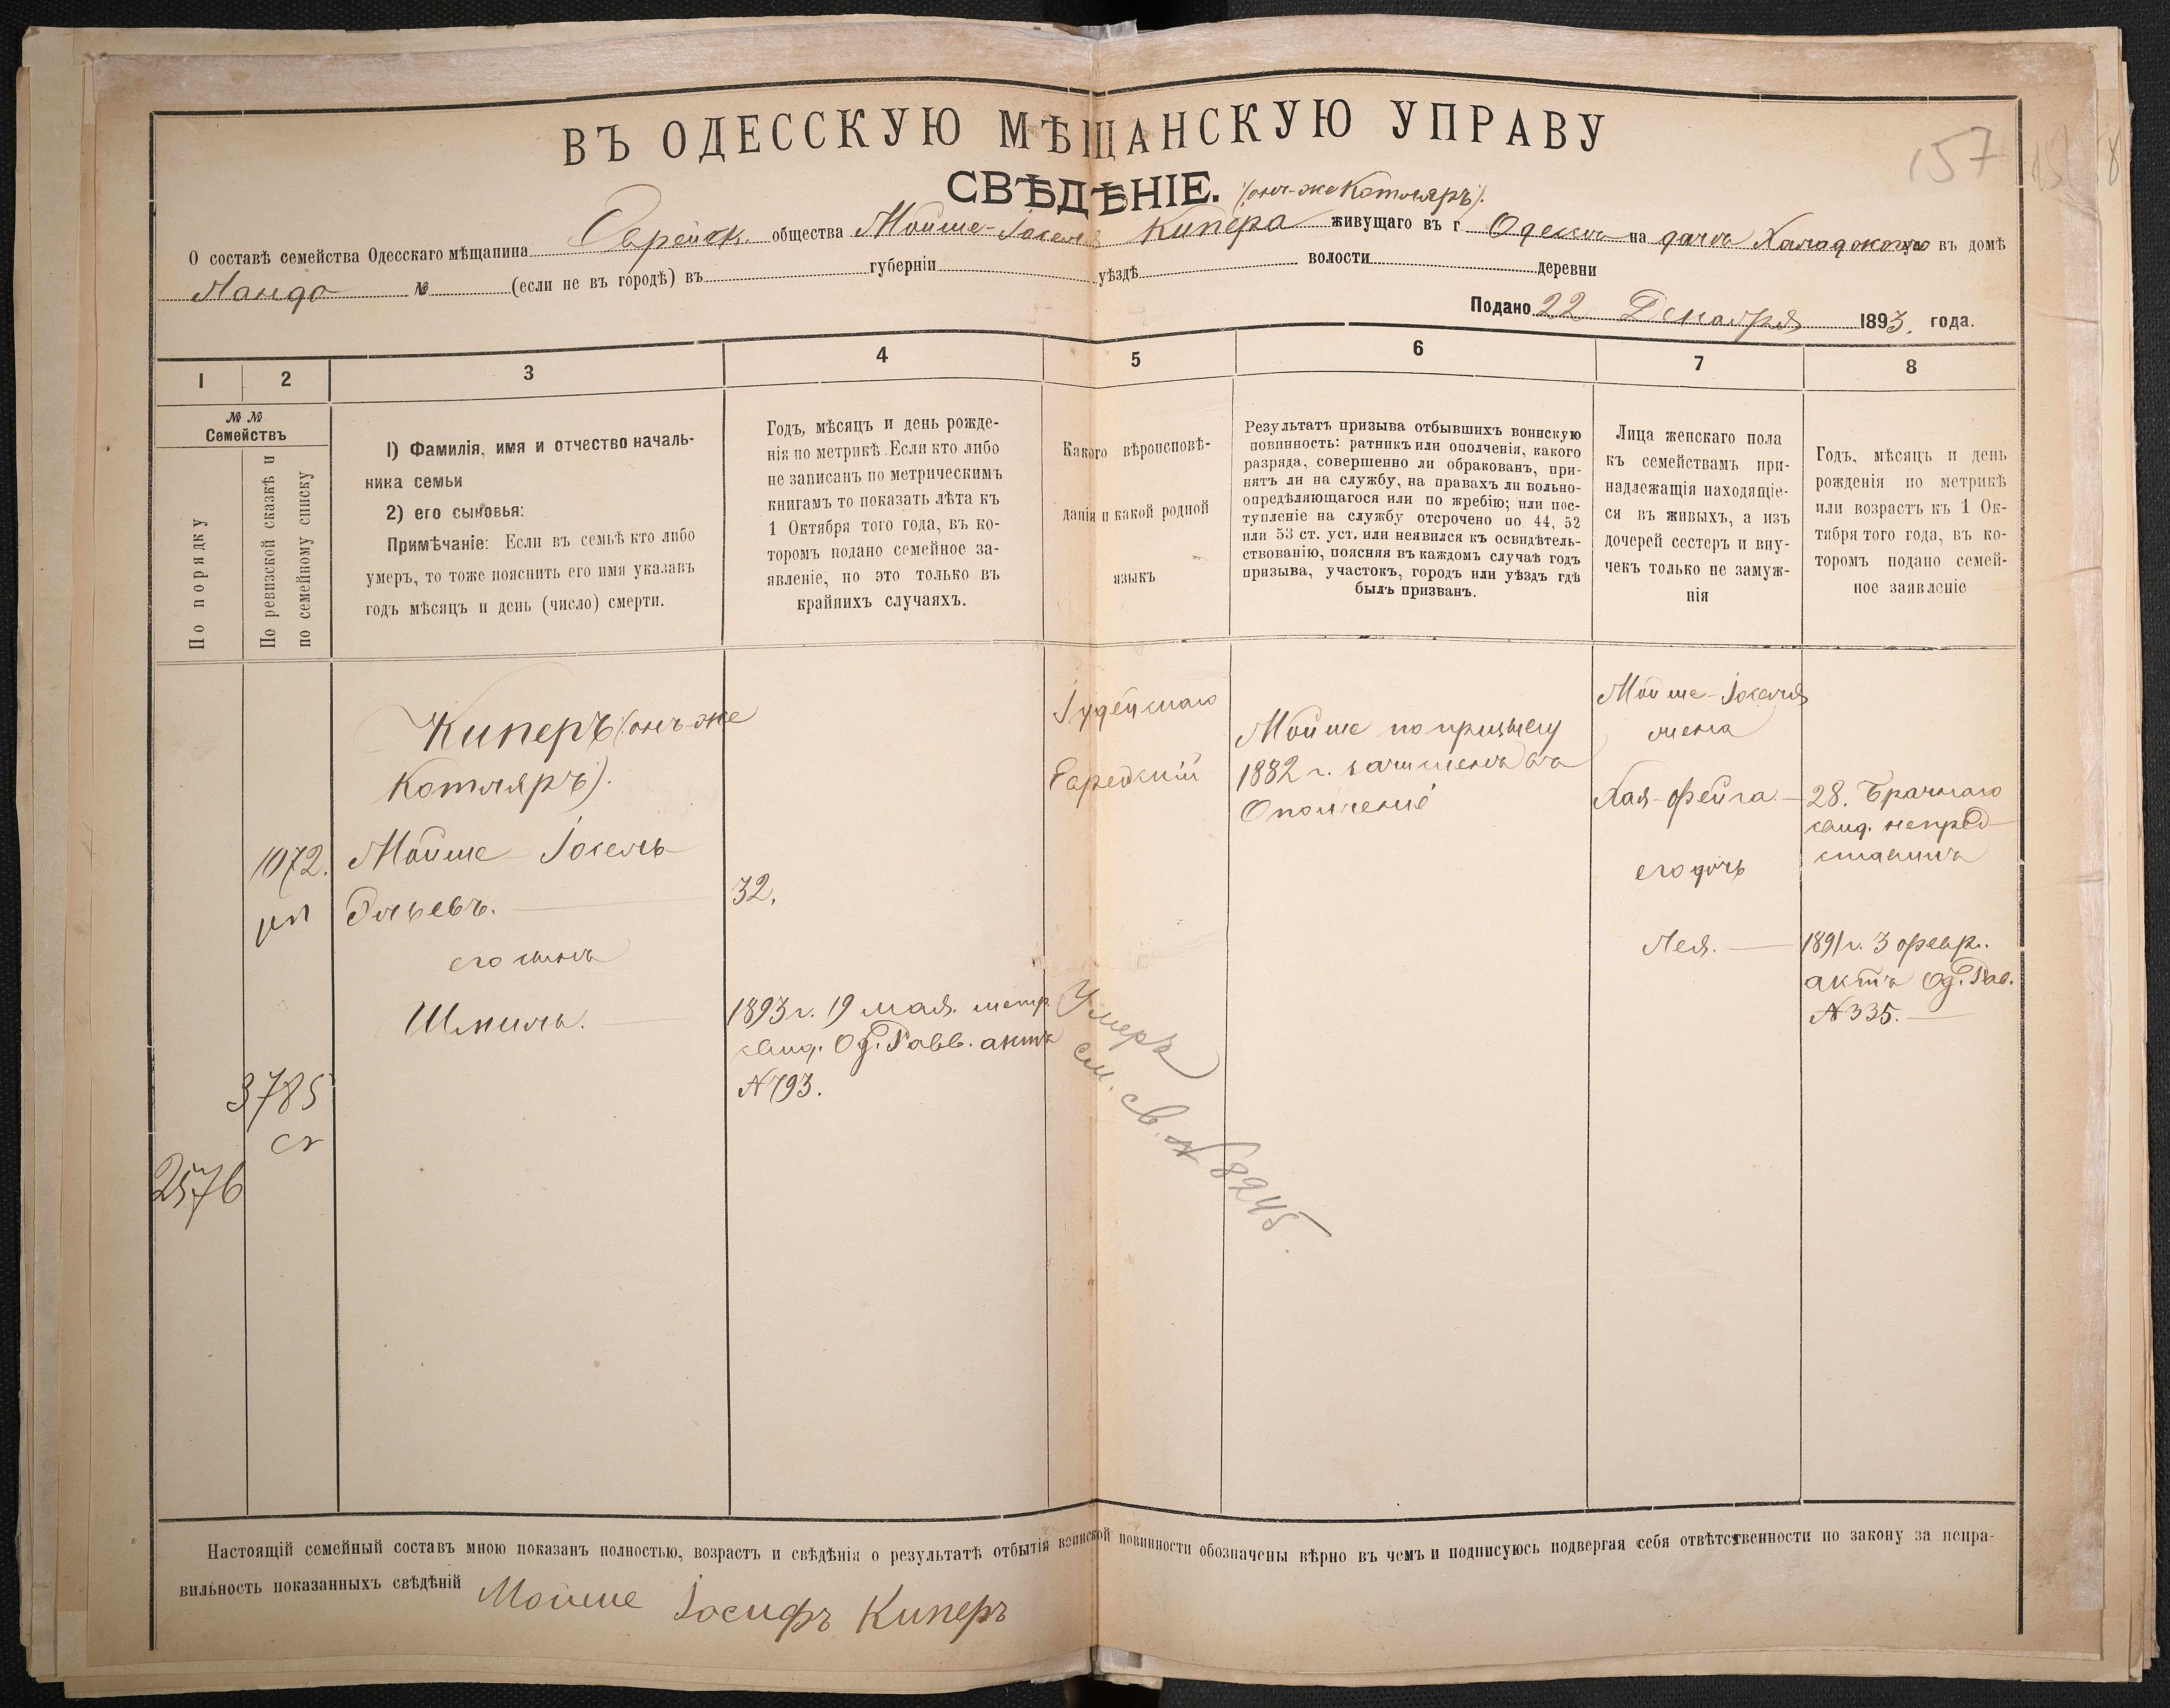 157
ВЪ ОДЕССКУЮ МѢЩАНСКУЮ УПРАВУ
СВѢДѢНІЕ. (онъ-же Котляръ).
О составѣ семейства Одесскаго мѣщанина Еврейск. общества Мойше-Іоселя Кипера живущаго въ г Одессѣ на дачѣ въ домѣ
Ланда № (если не въ городѣ) въ губерніи уѣздѣ волости деревни
Подано 22 Декабря 1893. года.
1 2 3 4 5 6 7 8
№ №
Семействъ
По порядку
По ревизской сказкѣ и
по семейному списку
1) Фамилія, имя и отчество началь-
ника семьи
2) его сыновья:
Примѣчаніе: Если въ семьѣ кто либо
умеръ, то тоже пояснить его имя указавъ
годъ мѣсяцъ и день (число) смерти.
Годъ, мѣсяцъ и день рожде-
нія по метрикѣ. Если кто либо
не записанъ по метрическимъ
книгамъ то показать лѣта къ
1 Октября того года, въ ко-
торомъ подано семейное за-
явленіе, но это только въ
крайнихъ случаяхъ.
Какого вѣроисповѣ-
данія и какой родной
языкъ
Результатъ призыва отбывшихъ воинскую
повинность: ратникъ или ополченія, какого
разряда, совершенно ли обракованъ, при-
нятъ ли на службу, на правахъ ли вольно-
опредѣляющагося или по жребію; или пос-
тупленіе на службу отсрочено по 44, 52
или 53 ст. уст. или неявился къ освидѣтель-
ствованію, поясняя въ каждомъ случаѣ годъ
призыва, участокъ, городъ или уѣздъ гдѣ
былъ призванъ.
Лица женскаго пола
къ семействамъ при-
надлежащія находящіе-
ся въ живыхъ, а изъ
дочерей сестеръ и вну-
чекъ только не замуж-
нія
Годъ, мѣсяцъ и день
рожденія по метрикѣ
или возрастъ къ 1 Ок-
тября того года, въ ко-
торомъ подано семей-
ное заявленіе
Киперъ (онъ-же
Котляръ).
1072.
Мойше-Іосель
Эльевъ.
его сынъ
Шмиль.
3785
2576
32.
1893 г. 19 мая. метр.
свид. Од. Равв. актъ
№ 793.
Іудейскаго
Еврейскій
Умеръ
см. св. № 8245.
Мойше по призыву
1882 г. зачисленъ въ
Ополченіе
Мойше-Іоселя
жена
Хая-Фейга.
его дочь
Лея.
28. Брачнаго
свид. непред-
ставилъ
1891 г. 3 февр.
актъ Од. Рав.
№ 335.
Настоящій семейный составъ мною показанъ полностью, возрастъ и свѣдѣнія о результатѣ отбытія воинской повинности обозначены вѣрно въ чемъ и подписуюсь подвергая себя отвѣтственности по закону за непра-
вильность показанныхъ свѣдѣній Мойше Іосифъ Киперъ